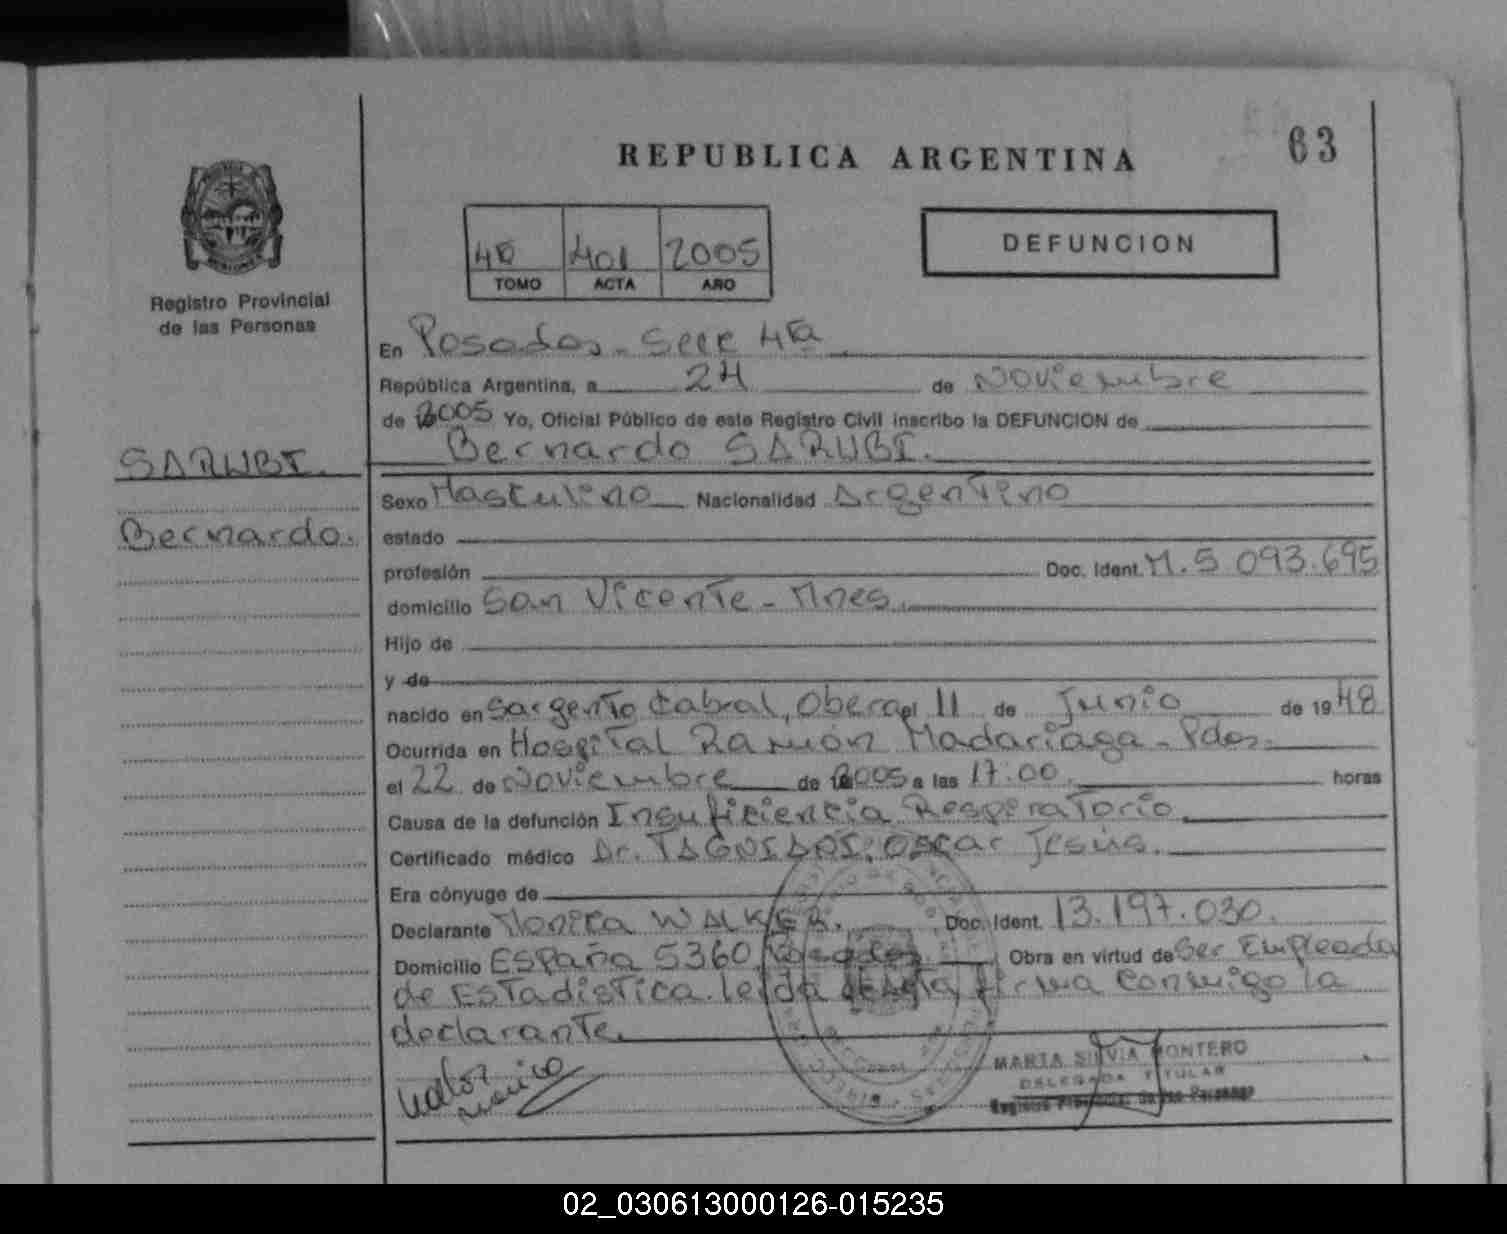 REPUBLICA ARGENTINA
63
4º 401 2005
TOMO ACTA AÑO
DEFUNCION
Registro Provincial
de las Personas
SARUBI.
Bernardo.
En Posadas - Secc 4ta
República Argentina, a 24 de Noviembre
de 2005 Yo, Oficial Público de este Registro Civil inscribo la DEFUNCION de
Bernardo SARUBI.
Sexo Masculino Nacionalidad Argentino
estado
profesión Doc. Ident. M. 5 093.695
domicilio San Vicente - Mnes.
Hijo de
y de
nacido en Sargento Cabral, Obera el 11 de Junio de 1948
Ocurrida en Hospital Ramón Madariaga - Pdas.
el 22 de Noviembre de 2005 a las 17:00 horas
Causa de la defunción Insuficiencia Respiratorio
Certificado médico Dr. Oscar Jesús.
Era cónyuge de
Declarante Monica WALKER. Doc. Ident. 13.197.030.
Domicilio España 5360 Posadas Obra en virtud de Ser Empleada
de Estadistica. leída el acta, firma conmigo la
declarante.
MARTA SILVIA MONTERO
DELEGADA TITULAR
Registro Provincial de las Personas
02_030613000126-015235